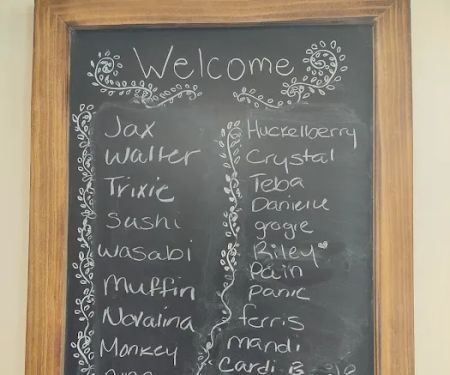 Welcome
Jax
Walter
Trixie
Sushi
Wasabi
Muffin
Novalina
Monkey
Huckelberry
Crystal
Teba
Danielle
grogie
Riley
Pain
Panic
ferris
mandi
Cardi B